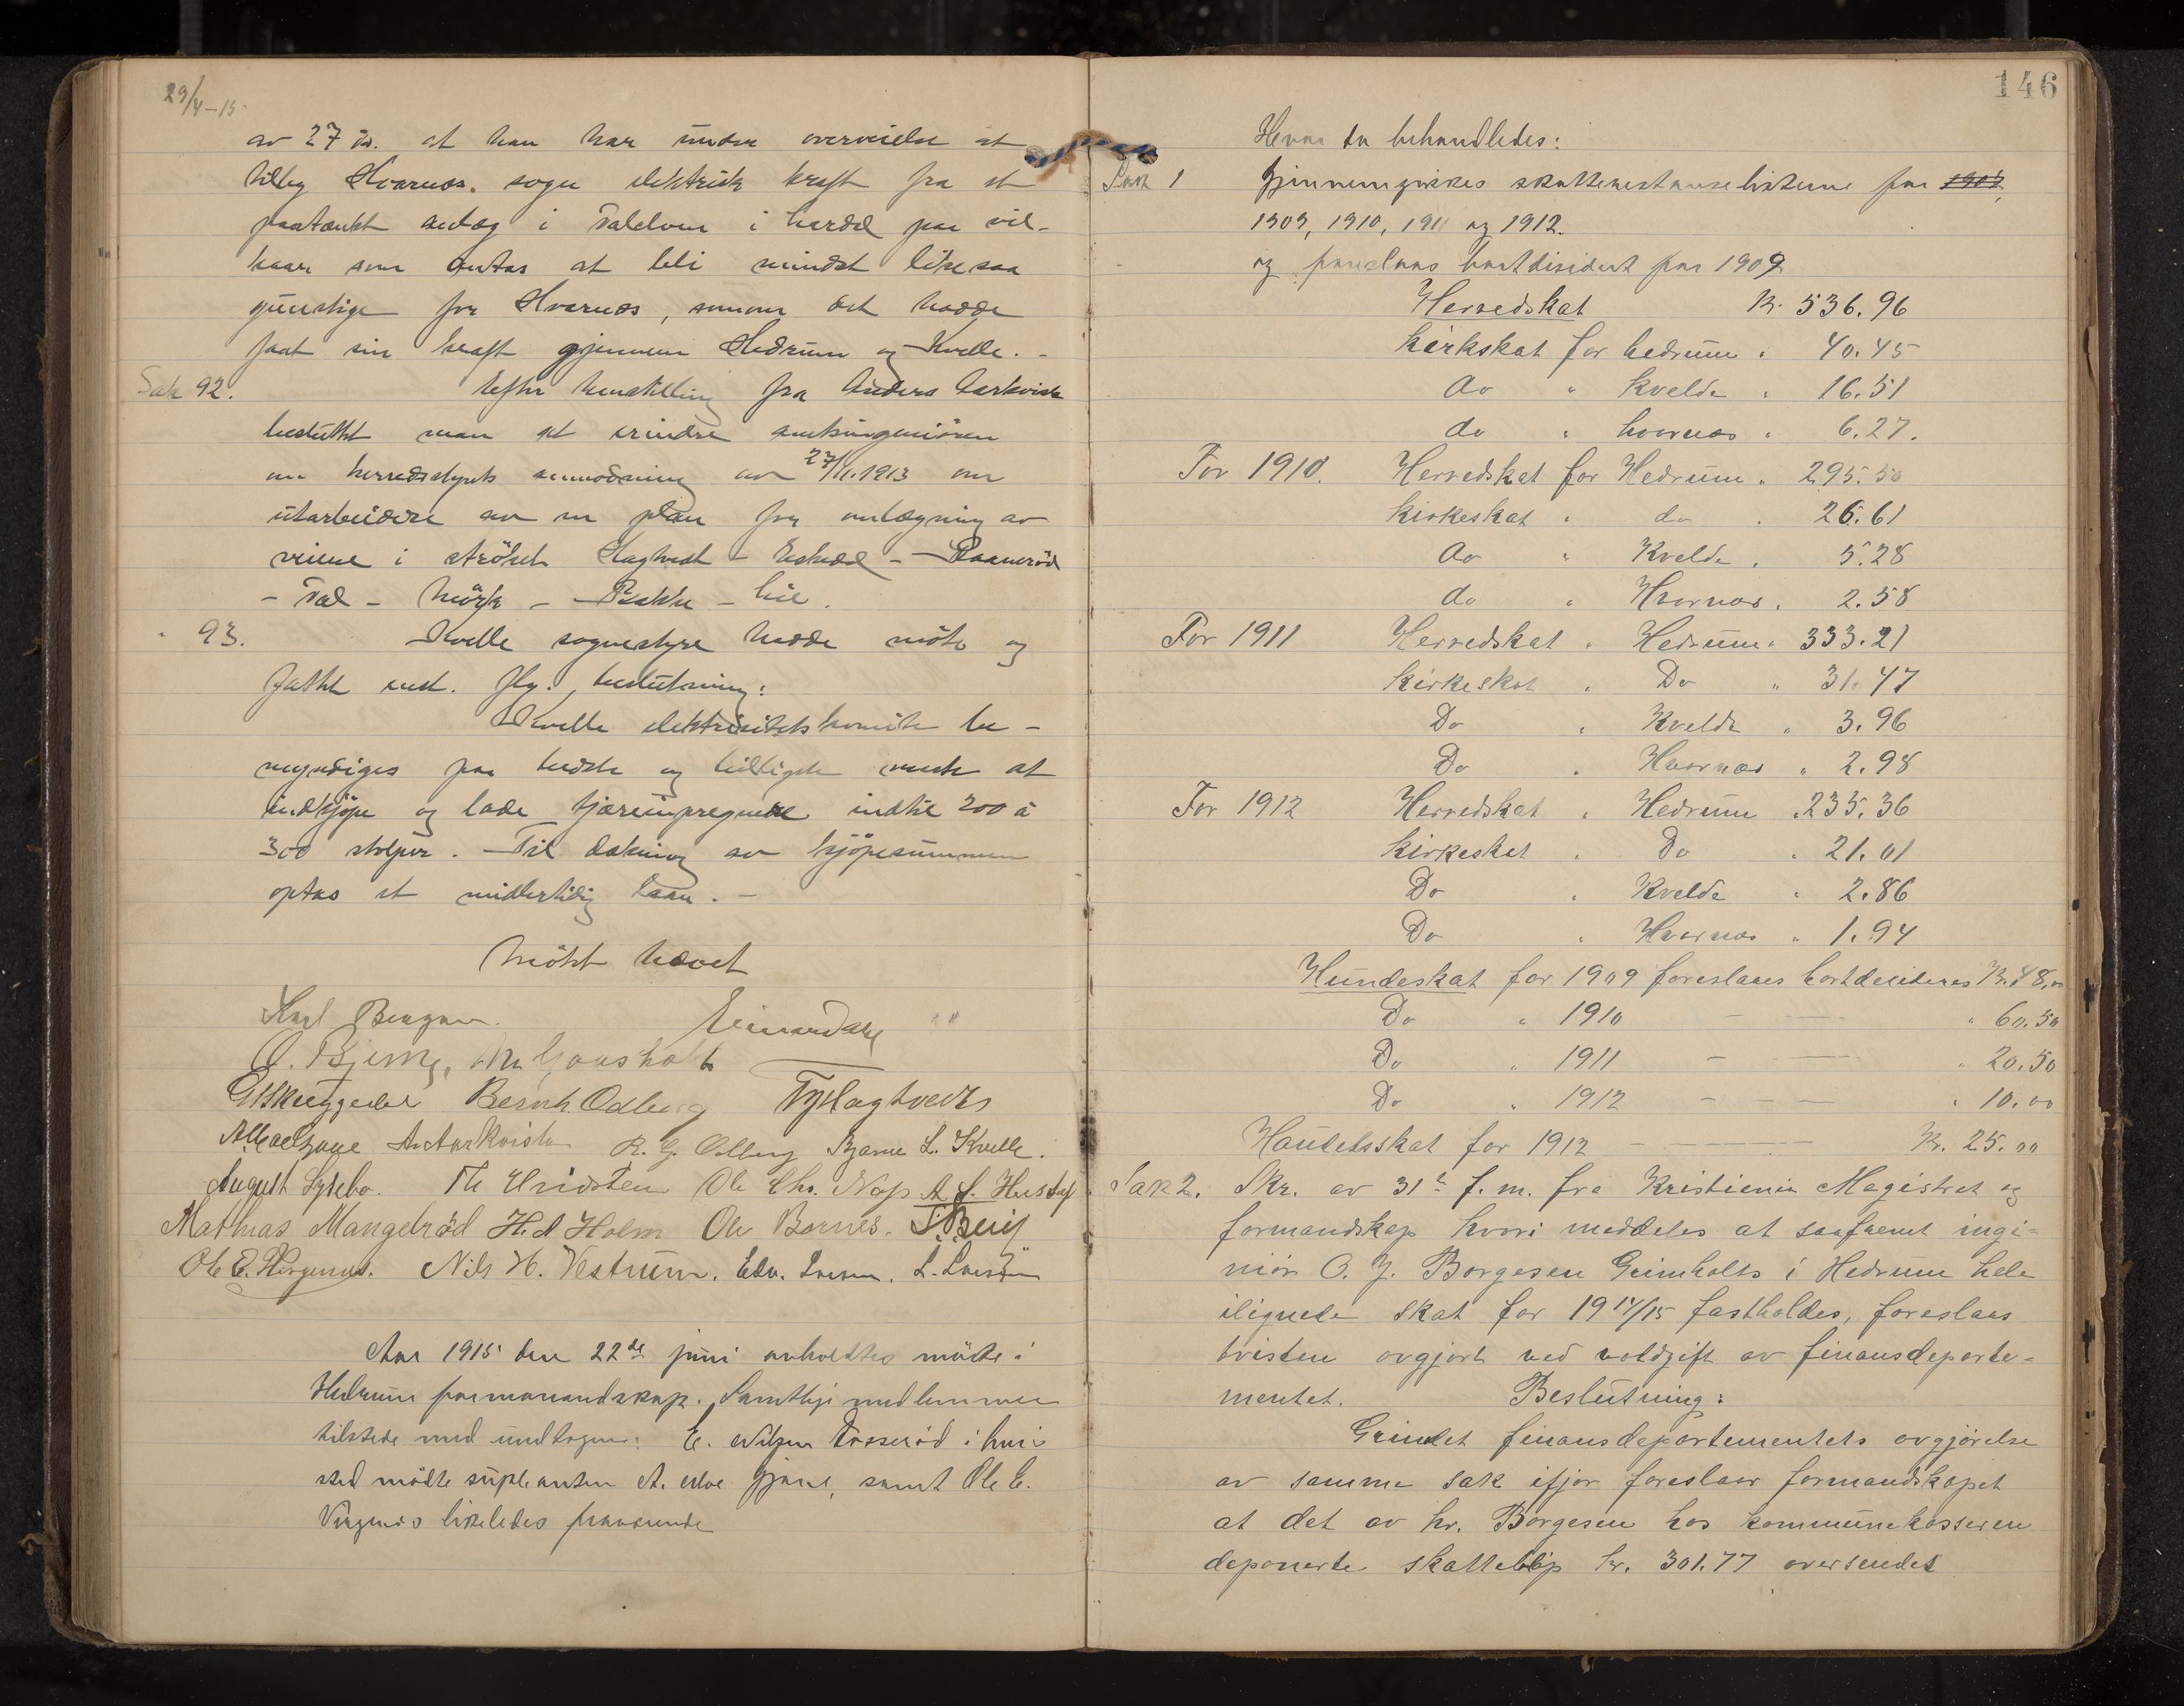 29/4-15
av 27 ds. at han har under overveielse at
tilby Hvarnes sogn elektrisk kraft fra et
paatænkt anlæg i Dalelven i Lardal paa vil-
kaar som antas at bli mindst likesaa
gunstige for Hvarnes, somom det hadde
faat sin kraft gjennem Hedrum og Kvelle. -
Sak 92. Efter henstilling fra Anders Aarkvisla
besluttet man at erindre amtsingeniören
om herredsstyrets anmodning av 27/11.1913 om
utarbeidere av en plan for omlægning av
veiene i ströket Slagtvedt - - 
- Dal - Mörk - Bakke - .
" 93. Kvelle sognestyre hadde möte og
fattet enst. flg. beslutning:
Kvelle elektrisitetskomite be-
myndiges paa bedste og billigste maate at
indkjöpe og lade tjæreimpregnere indtil 200 à
300 stolper. - Til dækning av kjöpesummen
optas et midlertidig laan. -
Mötet hævet
Karl Bergan. Einar Dahl
O. Bjerke,
G Skuggedal Bernh Odberg T Slagtvedt
A. Aarkvisla R. G. Odberg Bjarne L. Kvelle.
August Lysebo. Th Ole Chr. Nes A. S.
Mathias Mangelröd H. A Holm Ole Bornes.
Ole E. Virgenæs. Nils H. Vestrum. Edv. Larsen. L. Larsen
Aar 1915 den 22de juni avholdtes möte i
Hedrum formannandskap. Samtlige medlemmer
tilstede med undtagen: E. Nilsen i hvis
sted mödte supleanten A. Moe Gjone, samt Ole E.
Virgenes likeledes fraværende
146
Hvor da behandledes:
Sak 1 Gjennemgikkes skatterestanselisterne for 1908,
1909, 1910, 1911 og 1912.
og foreslaas bortdisidert for 1909
Herredskat Kr. 536.96
Kirkskat for hedrum " 40.45
do " Kvelde " 16.51
do " hvarnes " 6.27.
For 1910. Herredskat for Hedrum " 295.50
Kirkeskat " do " 26.61
do " Kvelde " 5.28
do " Hvarnes " 2.58
For 1911 Herredskat " Hedrum " 333.21
Kirkeskat " Do " 31.47
Do " Kvelde " 3.96
Do " Hvarnes " 2.98
For 1912 Herredskat " Hedrum " 235.36
Kirkeskat " Do " 21.01
Do " Kvelde " 2.86
Do " Hvarnes " 1.94
Hundeskat for 1909 foreslaaes bortdesideres Kr. 48,00
Do " 1910 - — " 60.50
Do " 1911 - — " 20.50
Do " 1912 - - — " 10.00
Handelsskat for 1912 - — Kr. 25.00
Sak 2. Skr. av 31te f. m. fra Kristiania Magistrat og
formandskap hvori meddeles at saafremt ingi-
niör O. J. Borgesen Grimholts i Hedrum hele
ilignede skat for 1914/15 fastholdes, foreslaas
tvisten avgjort ved voldgift av finansdeparte-
mentet. Beslutning:
Grundet finansdepartementets avgjörelse
av samme sak ifjor foreslaar formandskapet
at det av hr. Borgesen hos kommunekasseren
deponerte skattebelöp kr. 301.77 oversendes